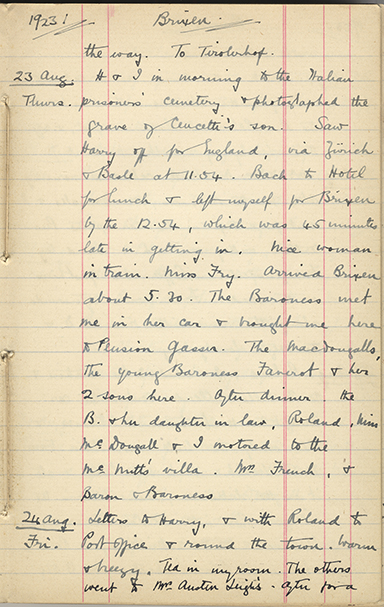 1923! Brixen.
the way. To Tirolerhof.
23 Aug. H & I in morning to the Italian
Thurs. prisoners' cemetery & photographed the
grave of Ceucetti's son. Saw
Harry off for England, via Zürich
& Basle at 11.54. Back to Hotel
for lunch & left myself for Brixen
by the 12.54, which was 45 minutes
late in getting in. Nice woman
in train. Miss Fry. Arrived Brixen
about 5.30. The Baroness met
me in her car & brought me here
to Pension Gasser. The MacDougalls,
the young Baroness Faverot & her
2 sons here. After dinner. the
B. & her daughter in law, Roland, Miss
McDougall & I motored to the
McNutt's villa. Mr. French, &
Baron & Baroness
24 Aug. Letters to Harry, & with Roland to
Fri. Post Office & round the town. Warm
& breezy. Tea in my room. The others
went to Mrs Austen Leigh's. After for a